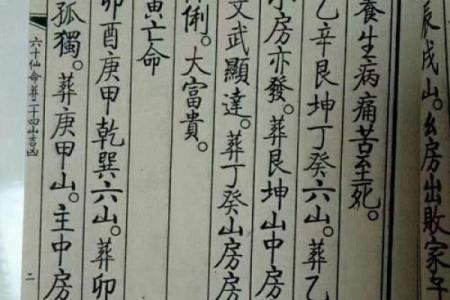 辰戌山。幺房出敗家子
養生病痛苦至死。
乙辛艮坤丁癸六山。葬乙
小房亦發。葬艮坤山中房
文武顯達。葬丁癸山房房
俐。大富貴。
寅亡命
卯酉庚甲乾巽六山。葬卯
孤獨。葬庚甲山。主中房
六十仙命葬二十四山吉凶
二